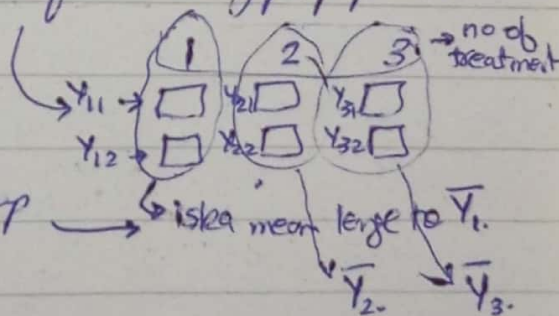 1 2 3 → no of
treatment
Y11 → Y21 Y31
Y12 → Y22 Y32
→ iska mean lenge to Y̅1.
Y̅2. Y̅3.